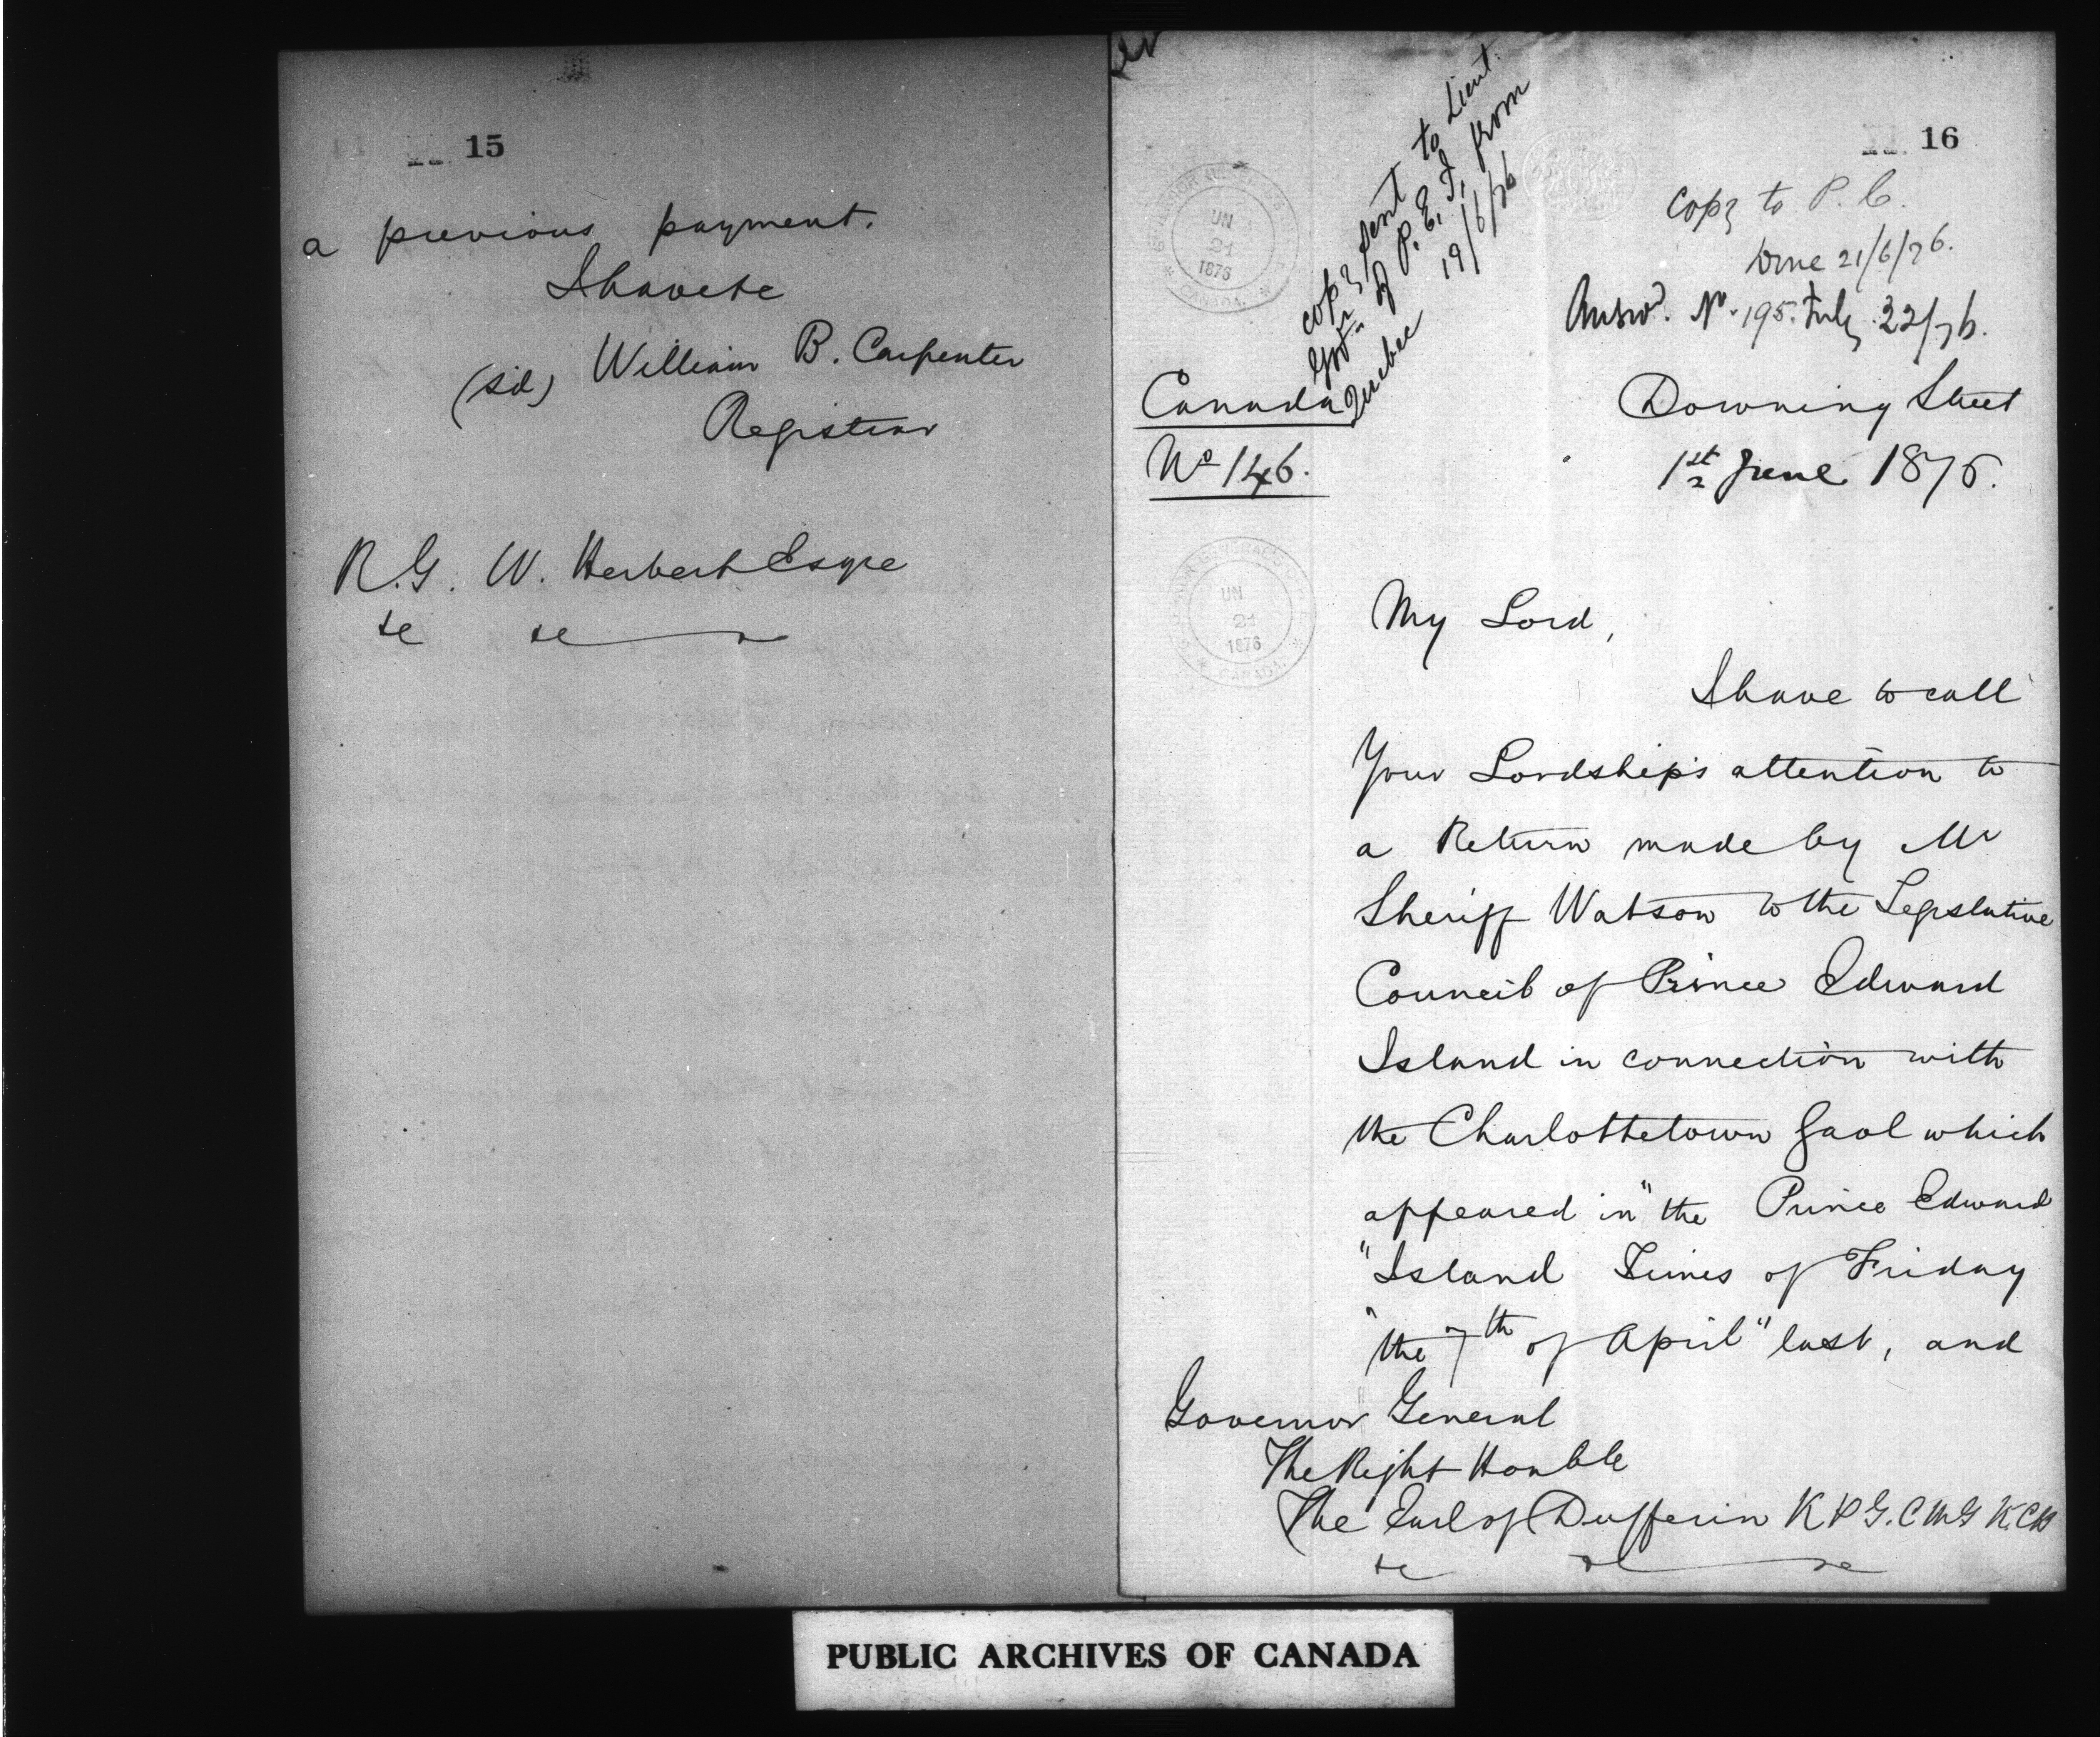 15
a previous payment.
I have &c
(sd) William B. Carpenter
Registrar
R.G. W. Herbert Esqre
&c &c
16
Copy sent to Lieut.
Govr. of P.E.I. from
Quebec 19/6/76
Copy to P.C.
Done 21/6/76.
Answd. No. 195. July 22/76.
Canada
No 146.
Downing Street
1st June 1876.
UN
21
1876
CANADA.
UN
21
1876
CANADA.
My Lord,
I have to call
Your Lordship's attention to
a Return made by Mr
Sheriff Watson to the Legislative
Council of Prince Edward
Island in connection with
the Charlottetown Gaol which
appeared in "the Prince Edward
"Island Times of Friday
"the 7th of April" last, and
Governor General
The Right Honble
The Earl of Dufferin K P G.C M G K.C.B
&c &c &c
PUBLIC ARCHIVES OF CANADA